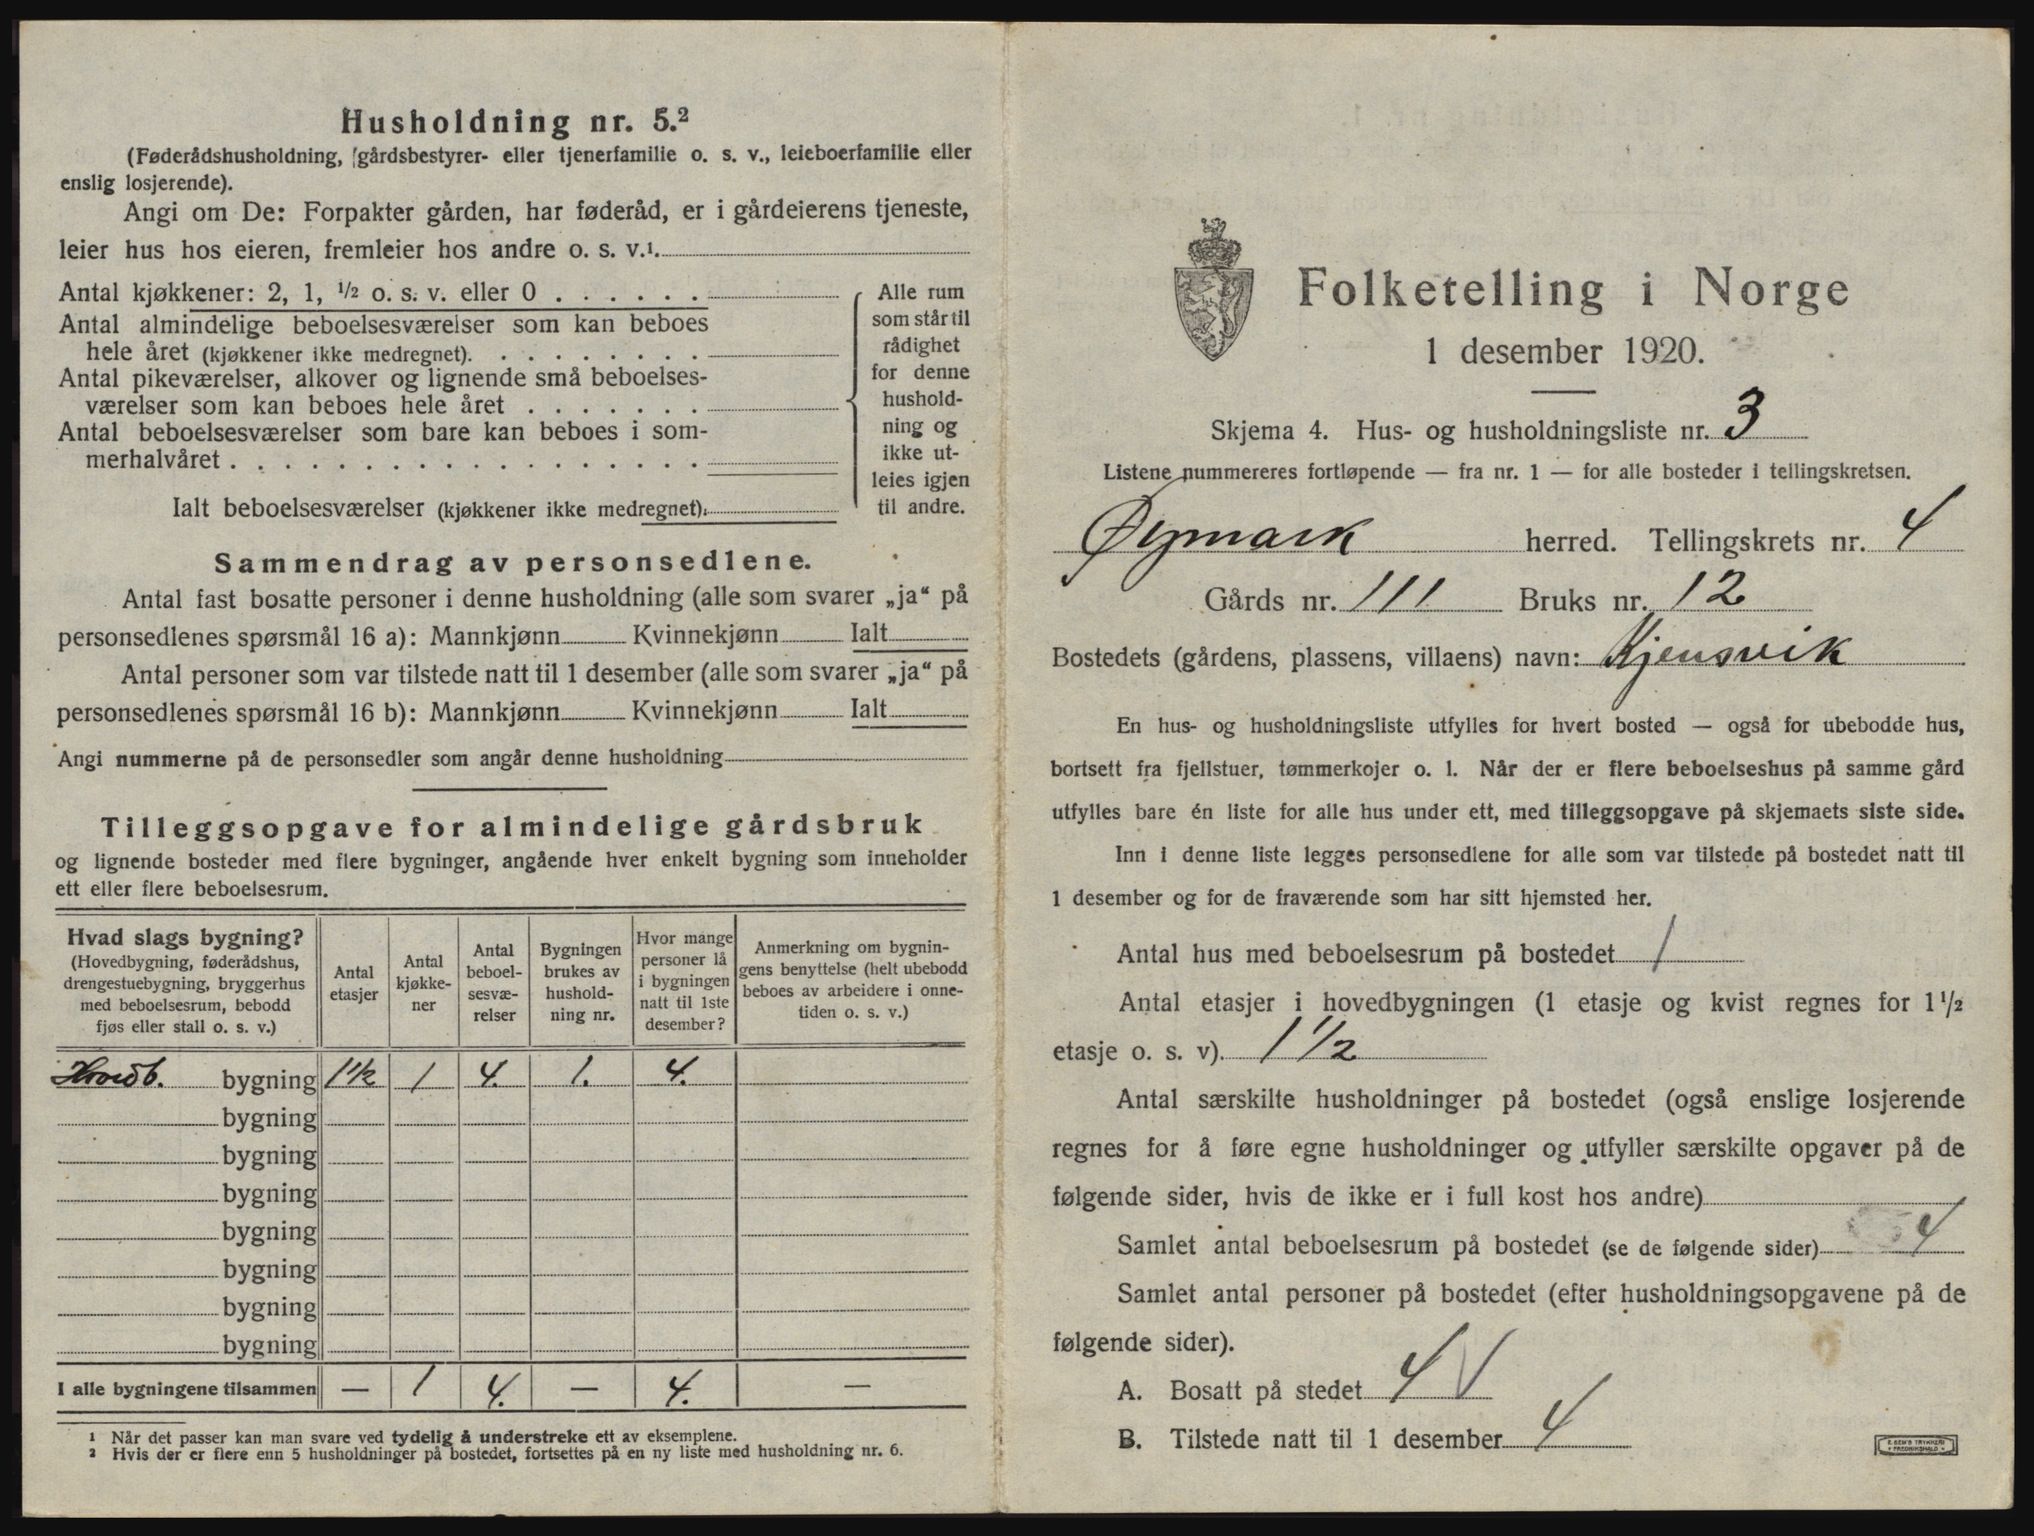 Husholdning nr. 5.²
(Føderådshusholdning, gårdsbestyrer- eller tjenerfamilie o. s. v., leieboerfamilie eller
enslig losjerende).
Angi om De: Forpakter gården, har føderåd, er i gårdeierens tjeneste,
leier hus hos eieren, fremleier hos andre o. s. v.¹.
Antal kjøkkener: 2, 1, ½ o. s. v. eller 0 . . . . . .
Antal almindelige beboelsesværelser som kan beboes
hele året (kjøkkener ikke medregnet). . . . . . . . .
Antal pikeværelser, alkover og lignende små beboelses-
værelser som kan beboes hele året . . . . . . .
Antal beboelsesværelser som bare kan beboes i som-
merhalvåret . . . . . . . . . . . . . . . . . .
Ialt beboelsesværelser (kjøkkener ikke medregnet).
Alle rum
som står til
rådighet
for denne
hushold-
ning og
ikke ut-
leies igjen
til andre.
Sammendrag av personsedlene.
Antal fast bosatte personer i denne husholdning (alle som svarer „ja“ på
personsedlenes spørsmål 16 a): Mannkjønn Kvinnekjønn Ialt
Antal personer som var tilstede natt til 1 desember (alle som svarer „ja“ på
personsedlenes spørsmål 16 b): Mannkjønn Kvinnekjønn Ialt
Angi nummerne på de personsedler som angår denne husholdning
Tilleggsopgave for almindelige gårdsbruk
og lignende bosteder med flere bygninger, angående hver enkelt bygning som inneholder
ett eller flere beboelsesrum.
Hvad slags bygning?
(Hovedbygning, føderådshus,
drengestuebygning, bryggerhus
med beboelsesrum, bebodd
fjøs eller stall o. s. v.)
Antal
etasjer
Antal
kjøkke-
ner
Antal
beboel-
sesvæ-
relser
Bygningen
brukes av
hushold-
ning nr.
Hvor mange
personer lå
i bygningen
natt til 1ste
desember?
Anmerkning om bygnin-
gens benyttelse (helt ubebodd
beboes av arbeidere i onne-
tiden o. s. v.)
Hovedb. bygning 1½ 1 4. 1. 4.
bygning
bygning
bygning
bygning
bygning
bygning
bygning
I alle bygningene tilsammen — 1 4. — 4. —
¹ Når det passer kan man svare ved tydelig å understreke ett av eksemplene.
² Hvis der er flere enn 5 husholdninger på bostedet, fortsettes på en ny liste med husholdning nr. 6.
Folketelling i Norge
1 desember 1920.
Skjema 4. Hus- og husholdningsliste nr. 3
Listene nummereres fortløpende — fra nr. 1 — for alle bosteder i tellingskretsen.
Øymark herred. Tellingskrets nr. 4
Gårds nr. 111 Bruks nr. 12
Bostedets (gårdens, plassens, villaens) navn: Kjensvik
En hus- og husholdningsliste utfylles for hvert bosted — også for ubebodde hus,
bortsett fra fjellstuer, tømmerkojer o. l. Når der er flere beboelseshus på samme gård
utfylles bare én liste for alle hus under ett, med tilleggsopgave på skjemaets siste side.
Inn i denne liste legges personsedlene for alle som var tilstede på bostedet natt til
1 desember og for de fraværende som har sitt hjemsted her.
Antal hus med beboelsesrum på bostedet 1
Antal etasjer i hovedbygningen (1 etasje og kvist regnes for 1½
etasje o. s. v). 1½
Antal særskilte husholdninger på bostedet (også enslige losjerende
regnes for å føre egne husholdninger og utfyller særskilte opgaver på de
følgende sider, hvis de ikke er i full kost hos andre)
Samlet antal beboelsesrum på bostedet (se de følgende sider) 4
Samlet antal personer på bostedet (efter husholdningsopgavene på de
følgende sider).
A. Bosatt på stedet 4
B. Tilstede natt til 1 desember 4
E. SEM'S TRYKKERI
FREDRIKSHALD